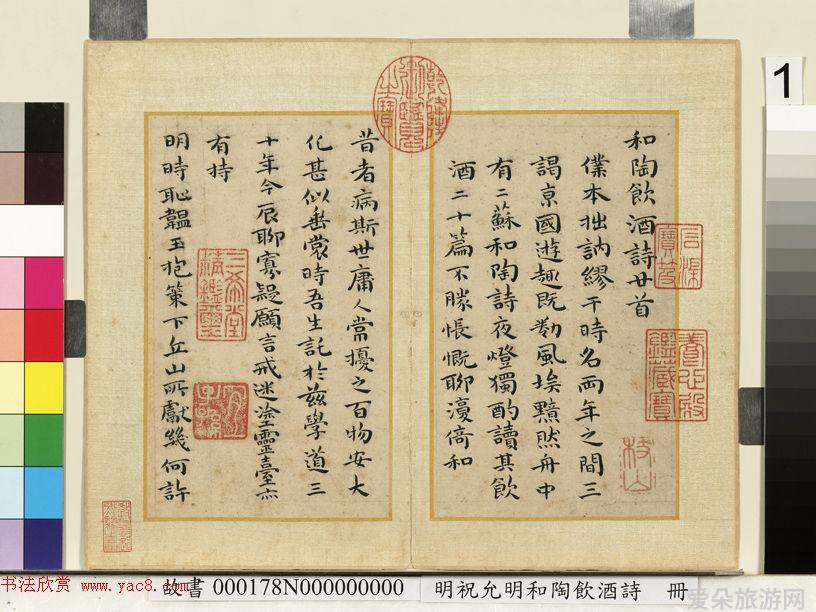 和陶飲酒詩廿首
僕本拙訥繆干時名両年之間三
謁京國遊趣既尠風埃黯然舟中
有二蘇和陶詩夜燈獨酌讀其飲
酒二十篇不勝悵慨聊濅倚和
昔者病斯世庸人常擾之百物安大
化甚似垂裳時吾生託於兹學道三
十年今辰聊寡疑願言戒迷塗靈臺亦
有持
明時恥韞玉抱策下丘山所獻幾何許
乾隆御覽之寶
三希堂精鑑璽
養心殿鑑藏寶
石渠寶笈
枝山
1
书法欣赏 www.yac8.com
故書 000178N000000000
明祝允明和陶飲酒詩 冊
爱朵旅游网